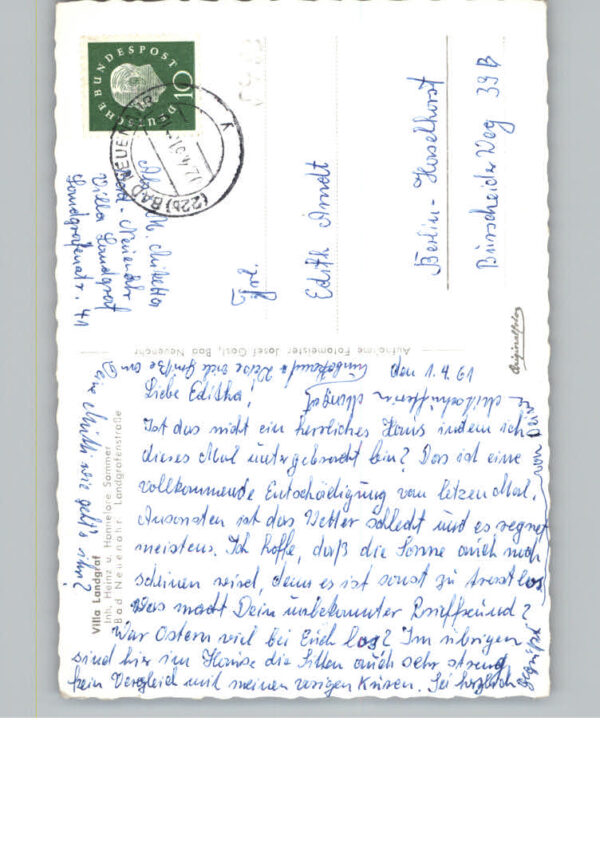 DEUTSCHE BUNDESPOST
10
(22b) BAD NEUENAHR
Bad-Neuenahr
Villa Landgraf
Landgrafenstr. 41
Edith Arndt
Berlin-Haselhorst
Burscheider Weg 39B
Originalfoto
Aufnahme Fotomeister Josef Gast, Bad Neuenahr
Villa Landgraf
Inh. Heinz u. Hannelore Sommer
Bad Neuenahr, Landgrafenstraße
den 1.4.61
Liebe Editha!
Ist das nicht ein herrliches Haus indem ich
dieses Mal untergebracht bin? Das ist eine
vollkommende Entschädigung vom letzen Mal.
Ansonsten ist das Wetter schlecht und es regnet
meistens. Ich hoffe, daß die Sonne auch noch
scheinen wird, denn es ist sonst zu trostlos
Was macht Dein unbekannter Brieffreund?
War Ostern viel bei Euch los? Im übrigen
sind hier im Hause die Sitten auch sehr streng
kein Vergleich mit meinen vorigen Kuren. Sei herzlich
gegrüßt von Deiner
Mitschülerin
Margot
Unbekannter Weise viele Grüße an
Deine Mutti wie geht's ihr?